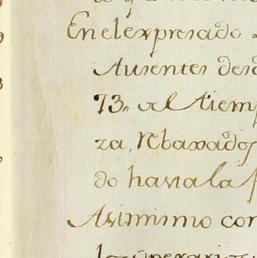 En el expresado
Ausentes desd
73. al tiemp
za, Rbaxados
do hasta la
Asimismo con